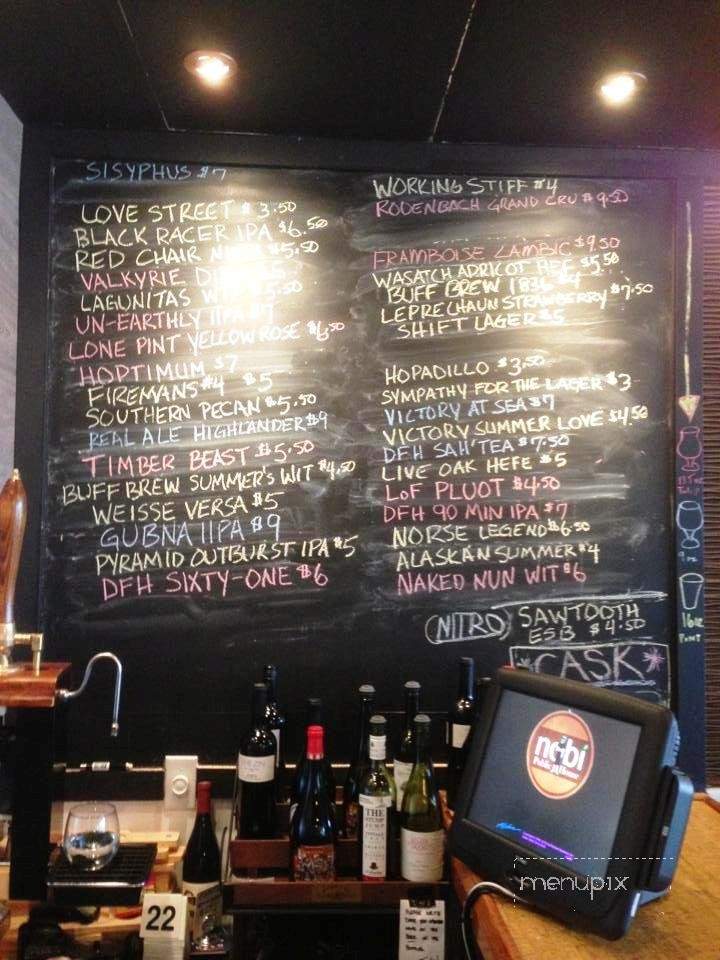 SISYPHUS $7
LOVE STREET $3.50
BLACK RACER IPA $6.50
RED CHAIR $5.50
VALKYRIE
LAGUNITAS $5.50
UN-EARTHLY IIPA $7
LONE PINT YELLOW ROSE $6.50
HOPTIMUM $7
FIREMANS #4 $5
SOUTHERN PECAN $5.50
REAL ALE HIGHLANDER $9
TIMBER BEAST $5.50
BUFF BREW SUMMER'S WIT $4.50
WEISSE VERSA $5
GUBNA IIPA $9
PYRAMID OUTBURST IPA $5
DFH SIXTY-ONE $6
WORKING STIFF $4
RODENBACH GRAND CRU $9.50
FRAMBOISE LAMBIC $9.50
WASATCH APRICOT HEF $5.50
BUFF BREW 1836 $4
LEPRECHAUN STRAWBERRY $7.50
SHIFT LAGER $5
HOPADILLO $3.50
SYMPATHY FOR THE LAGER $3
VICTORY AT SEA $7
VICTORY SUMMER LOVE $4.50
DFH SAH'TEA $7.50
LIVE OAK HEFE $5
LOF PLUOT $4.50
DFH 90 MIN IPA $7
NORSE LEGEND $6.50
ALASKAN SUMMER $4
NAKED NUN WIT $6
NITRO SAWTOOTH
ESB $4.50
*CASK*
9 oz
16oz
PINT
nobi
Public House
THE
STUMP
JUMP
22
menupix